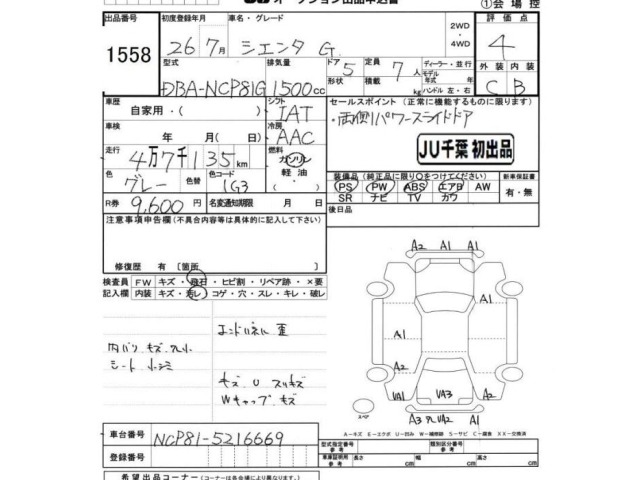 オークション出品申込書
①会場控
出品番号 初度登録年月 車名・グレード 2WD ・ 4WD 評価点
1558 26年7月 シエンタ G 4
型式 排気量 ドア 5 定員 7人 ディーラー・並行 外装 内装
形状 積載 kg モデル 年 ハンドル 左・右
DBA-NCP81G 1500cc C B
車歴 自家用・( ) シフト IAT セールスポイント (正常に機能するものに限ります)
・両側パワースライドドア
車検 年 月(日) 冷房 AAC
JU千葉 初出品
走行 4万7千135km 燃料 ガソリン 軽油・
色 グレー 色替 色コード 1G3
装備品(純正品に限り○をつけてください) 新車保証書
PS PW ABS エアB AW 有・無
SR ナビ TV カワ
R券 9,600円 名変通知期限 月 日
後日品
注意事項申告欄(不具合容等は具体的に記入して下さい)
修復歴 有 [箇所 ]
検査員 FW キズ・飛石・ヒビ割・リペア跡・×要
記入欄 内装 キズ・汚レ・コゲ・穴・スレ・キレ・破レ
エンドパネル 歪
内バリ キズ
シート
キズ U スリキズ
Wキャップ キズ
A2 A1 A1
A1
A1
A2 A1
UA1 UA3 A1
A3 UA2 A1
スペア
A－キズ E－エクボ U－凹み W－補修跡 S－サビ C－腐食 XX－交換済
車台番号 NCP81-5216669
登録番号
型式指定番号 参考 類別区分番号 参考
車庫証明用 参考 長さ 幅 高さ
希望出品コーナー (コーナーは各会場により異なります)